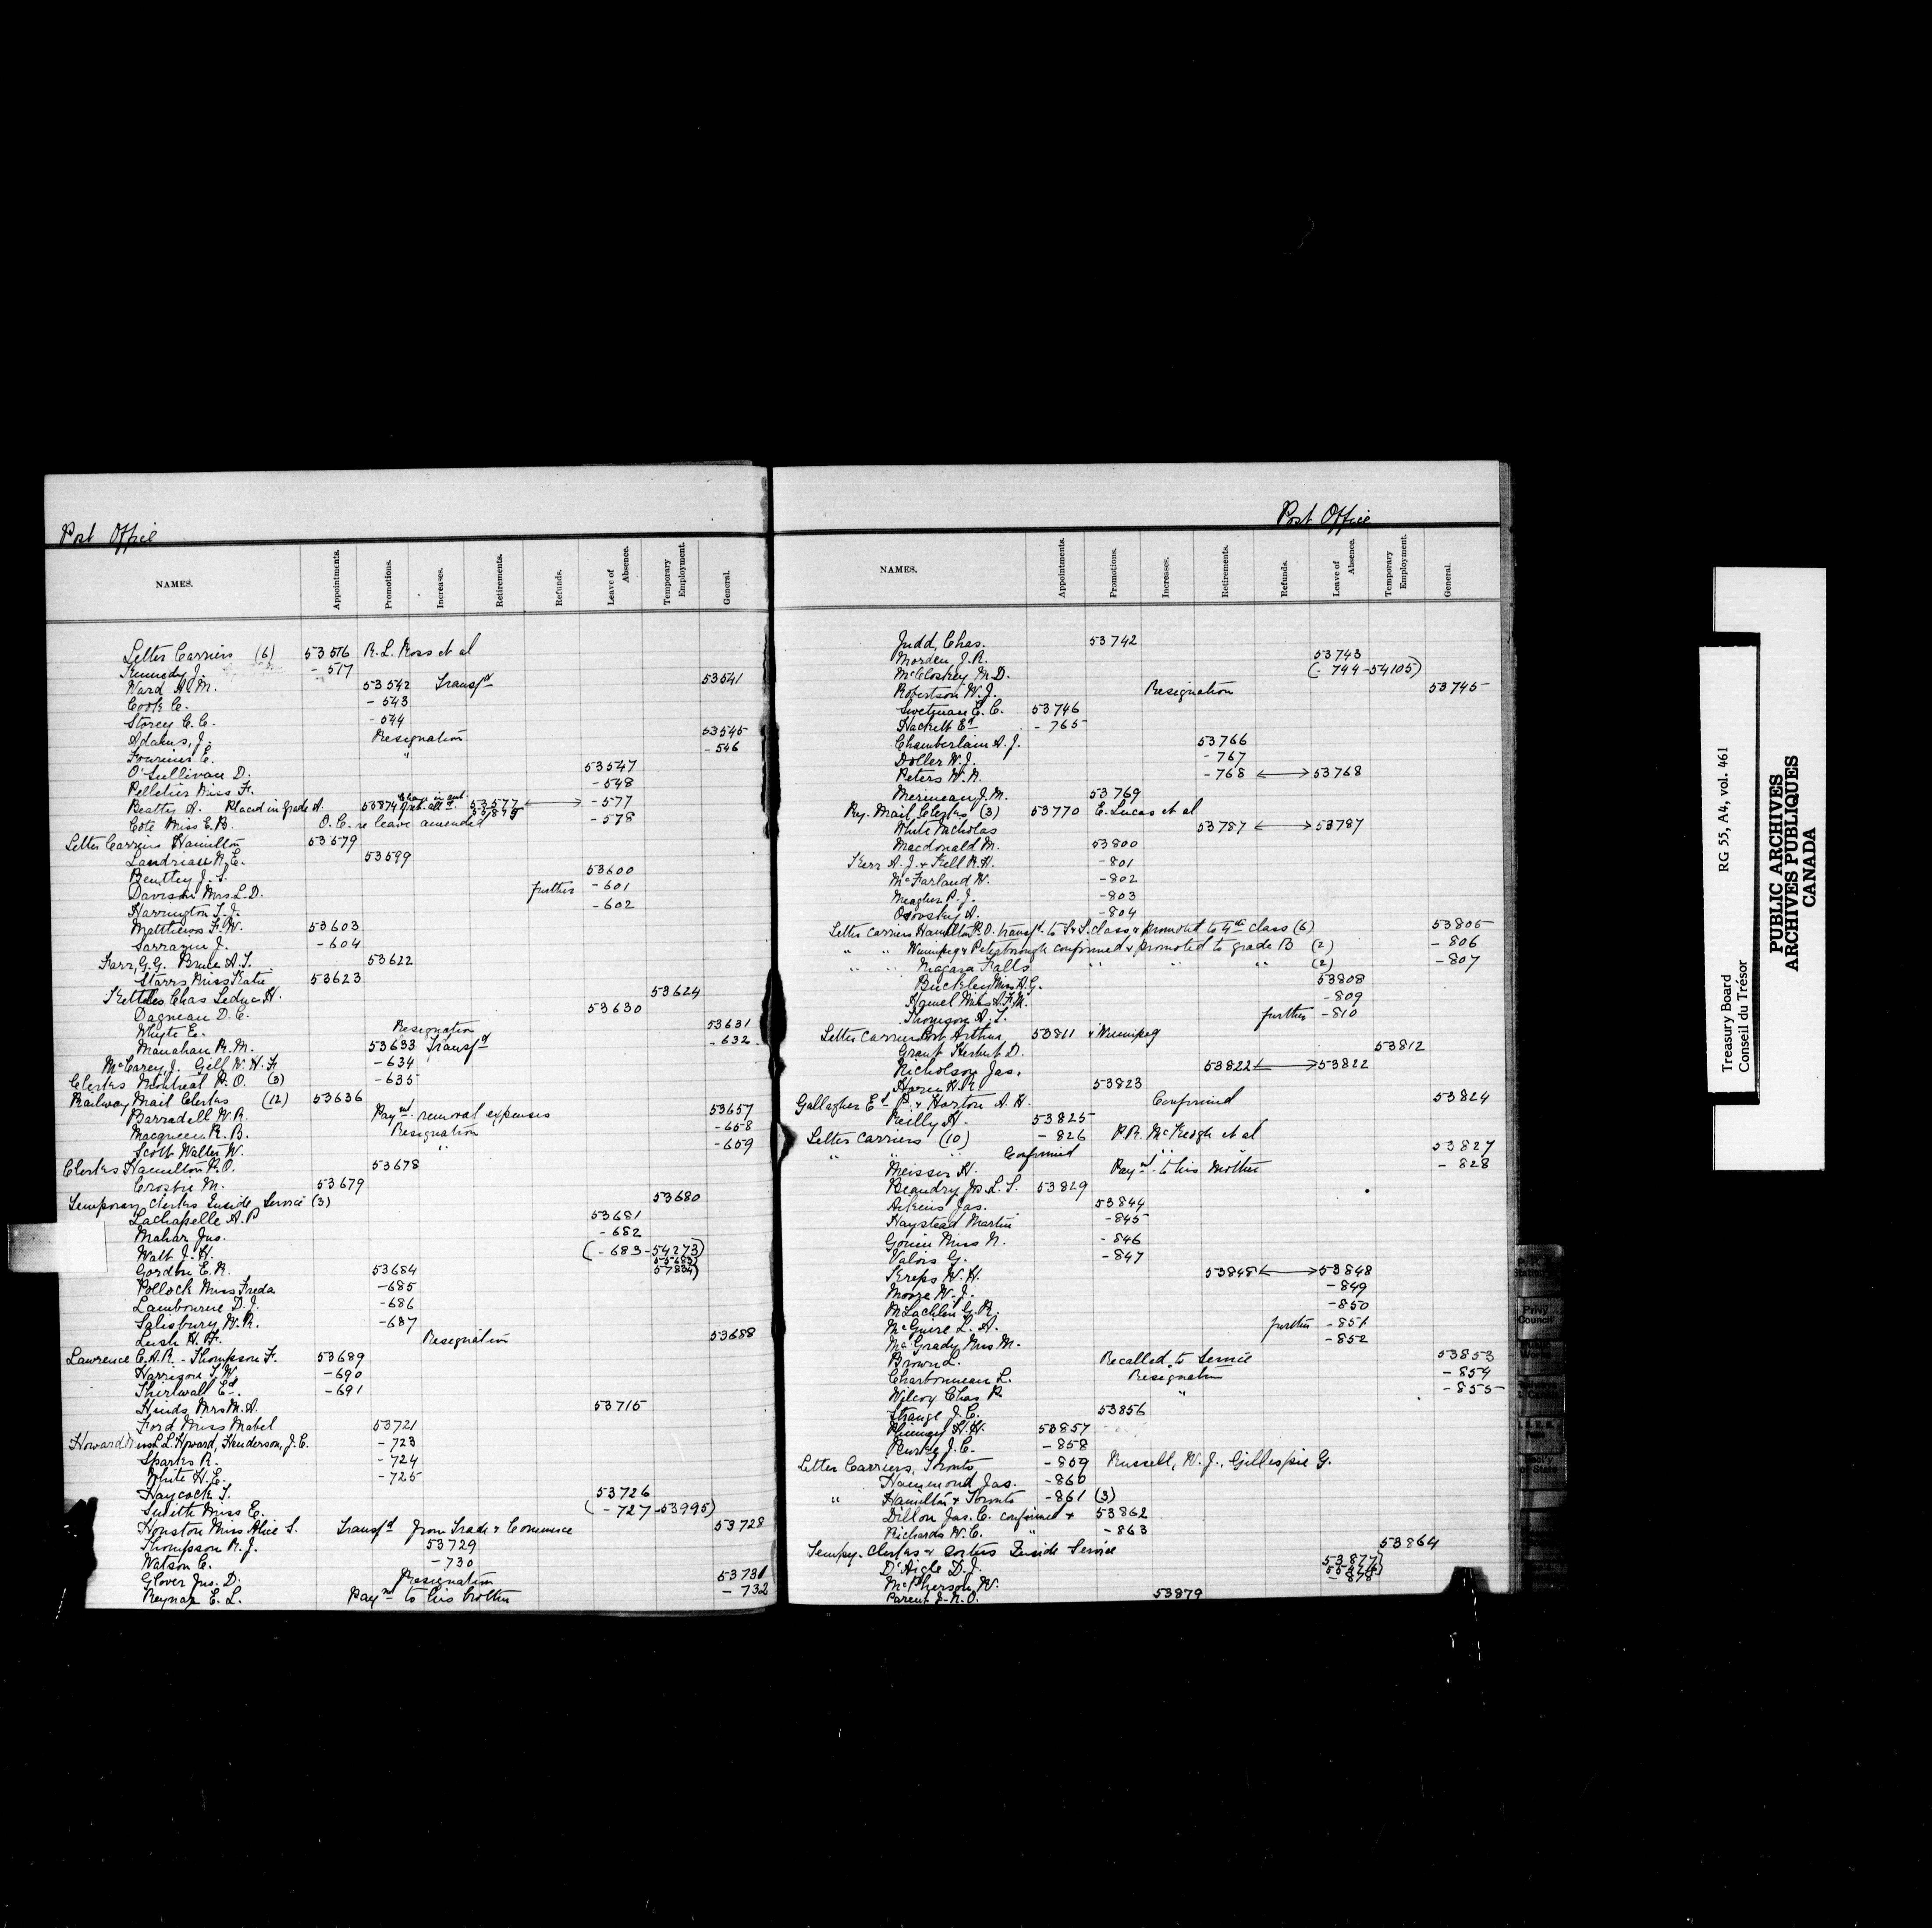 Post Office
NAMES. Appointments. Promotions. Increases. Retirements. Refunds. Leave of Absence. Temporary Employment. General.
Letter Carriers (6) 53516 R. L. Ross et al
Kennedy J. - 517
Ward A. M. 53542 Transfd 53541
Cook C. - 543
Storey C. C. - 544
Adams, J. Resignation 53545
Fournier E. " - 546
O'Sullivan D. 53547
Pelletier Miss F. - 548
Beatty A. Placed in Grade A. 53874 53577 ⟷ - 577
53875
Coté Miss E. B. O.C. re leave amended - 578
Letter Carriers Hamilton 53579
Landriau R. E. 53599
Bentley J. S. 53600
Davison Mrs L. D. further - 601
Harrington T. J. - 602
Matthews F. W. 53603
Sarrazin J. - 604
Farr, G. G. Bruce A. T. 53622
Starrs Miss Katie 53623
Kettles Chas Leduc H. 53624
Dagneau D. C. 53630
Whyte E. Resignation 53631
Manahan R. M. 53633 Transfd - 632
McCarey, J. Gill W. H. F. - 634
Clerks Montreal P. O. (3) - 635
Railway Mail Clerks (12) 53636
Barradell W. R. Paymt removal expenses 53657
Macqueen R. B. Resignation - 658
Scott Walter W. " - 659
Clerks Hamilton P. O. 53678
Crosbie M. 53679
Temporary Clerks Inside Service (3) 53680
Lachapelle A. P. 53681
Mahar Jas. - 682
Watt J. H. (- 683 - 54273)
Gordon E. R. 53684 57834)
Pollock Miss Freda - 685
Lambourne D. J. - 686
Salisbury W. R. - 687
Lush H. F. Resignation 53688
Lawrence C. A. R. - Thompson F. 53689
Harrison T. W. - 690
Thirlwall Ed. - 691
Hinds Mrs M. A. 53715
Ford Miss Mabel 53721
Howard Miss L. L. Howard, Henderson, J. C. - 723
Sparks R. - 724
White H. E. - 725
Haycock T. 53726
Smith Miss E. (- 727 - 53995)
Houston Miss Alice S. Transfd from Trade & Commerce 53728
Thompson R. J. 53729
Watson C. - 730
Glover Jno. D. Resignation 53731
Raynar E. L. Paymt to his brother - 732
Post Office
NAMES. Appointments. Promotions. Increases. Retirements. Refunds. Leave of Absence. Temporary Employment. General.
Judd, Chas. 53742
Morden J. R. 53743
McCloskey M. D. (- 744 - 54105)
Robertson W. J. Resignation 53745
Swetman E. C. 53746
Hackett Ed - 765
Chamberlain A. J. 53766
Doller W. J. - 767
Peters W. R. - 768 ⟷ 53768
Merineau J. M. 53769
Ry. Mail Clerks (3) 53770 E. Lucas et al
White Nicholas 53787 ⟷ 53787
Macdonald M. 53800
Kerr A. J. & Kell R. H. - 801
McFarland W. - 802
Meagher P. J. - 803
Osovsky A. - 804
Letter Carriers Hamilton P. O. transfd to S. & S. class & promoted to 4th class (6) 53805
" " Winnipeg & Peterborough confirmed & promoted to grade B (2) - 806
" " Niagara Falls " " " (2) - 807
Buckley Miss A. G. 53808
Hamel Miss A. F. M. - 809
Thomson A. T. further - 810
Letter Carriers Port Arthur 53811 & Winnipeg
Grant Herbert D. 53812
Nicholson Jas. 53822 ⟷ 53822
Horn H. R. 53823
Gallagher Ed P. & Horton A. H. Confirmed 53824
Reilly H. 53825
Letter Carriers (10) - 826 P. R. McKeogh et al
" " " Confirmed " " 53827
Meisser H. Paymt to his mother - 828
Beaudry Jos. L. S. 53829
Aikens Jas. 53844
Haystead Martin - 845
Gouin Miss N. - 846
Valois G. - 847
Kreps W. H. 53848 ⟷ 53848
Moore W. J. - 849
McLachlin G. R. - 850
McGuire L. A. further - 851
McGrady Miss M. - 852
Brown L. Recalled to Service 53853
Charbonneau L. Resignation - 854
Wilcox Chas R. " - 855
Strange J. C. 53856
Phinney H. H. 53857
Burke J. C. - 858
Letter Carriers, Toronto - 859 Russell, W. J., Gillespie G.
Hammond Jas. - 860
" Hamilton & Toronto - 861 (3)
Dillon Jas. C. confirmed & 53862
Richards W. C. " - 863
Tempy. Clerks & Sorters Inside Service 53864
D'Aigle D. J. 53877)
McPherson W. - 878
Parent J. N. O. 53879
Treasury Board RG 55, A4, vol. 461
Conseil du Trésor
PUBLIC ARCHIVES
ARCHIVES PUBLIQUES
CANADA
Privy
Council
Public
Works
Sect'y
of State